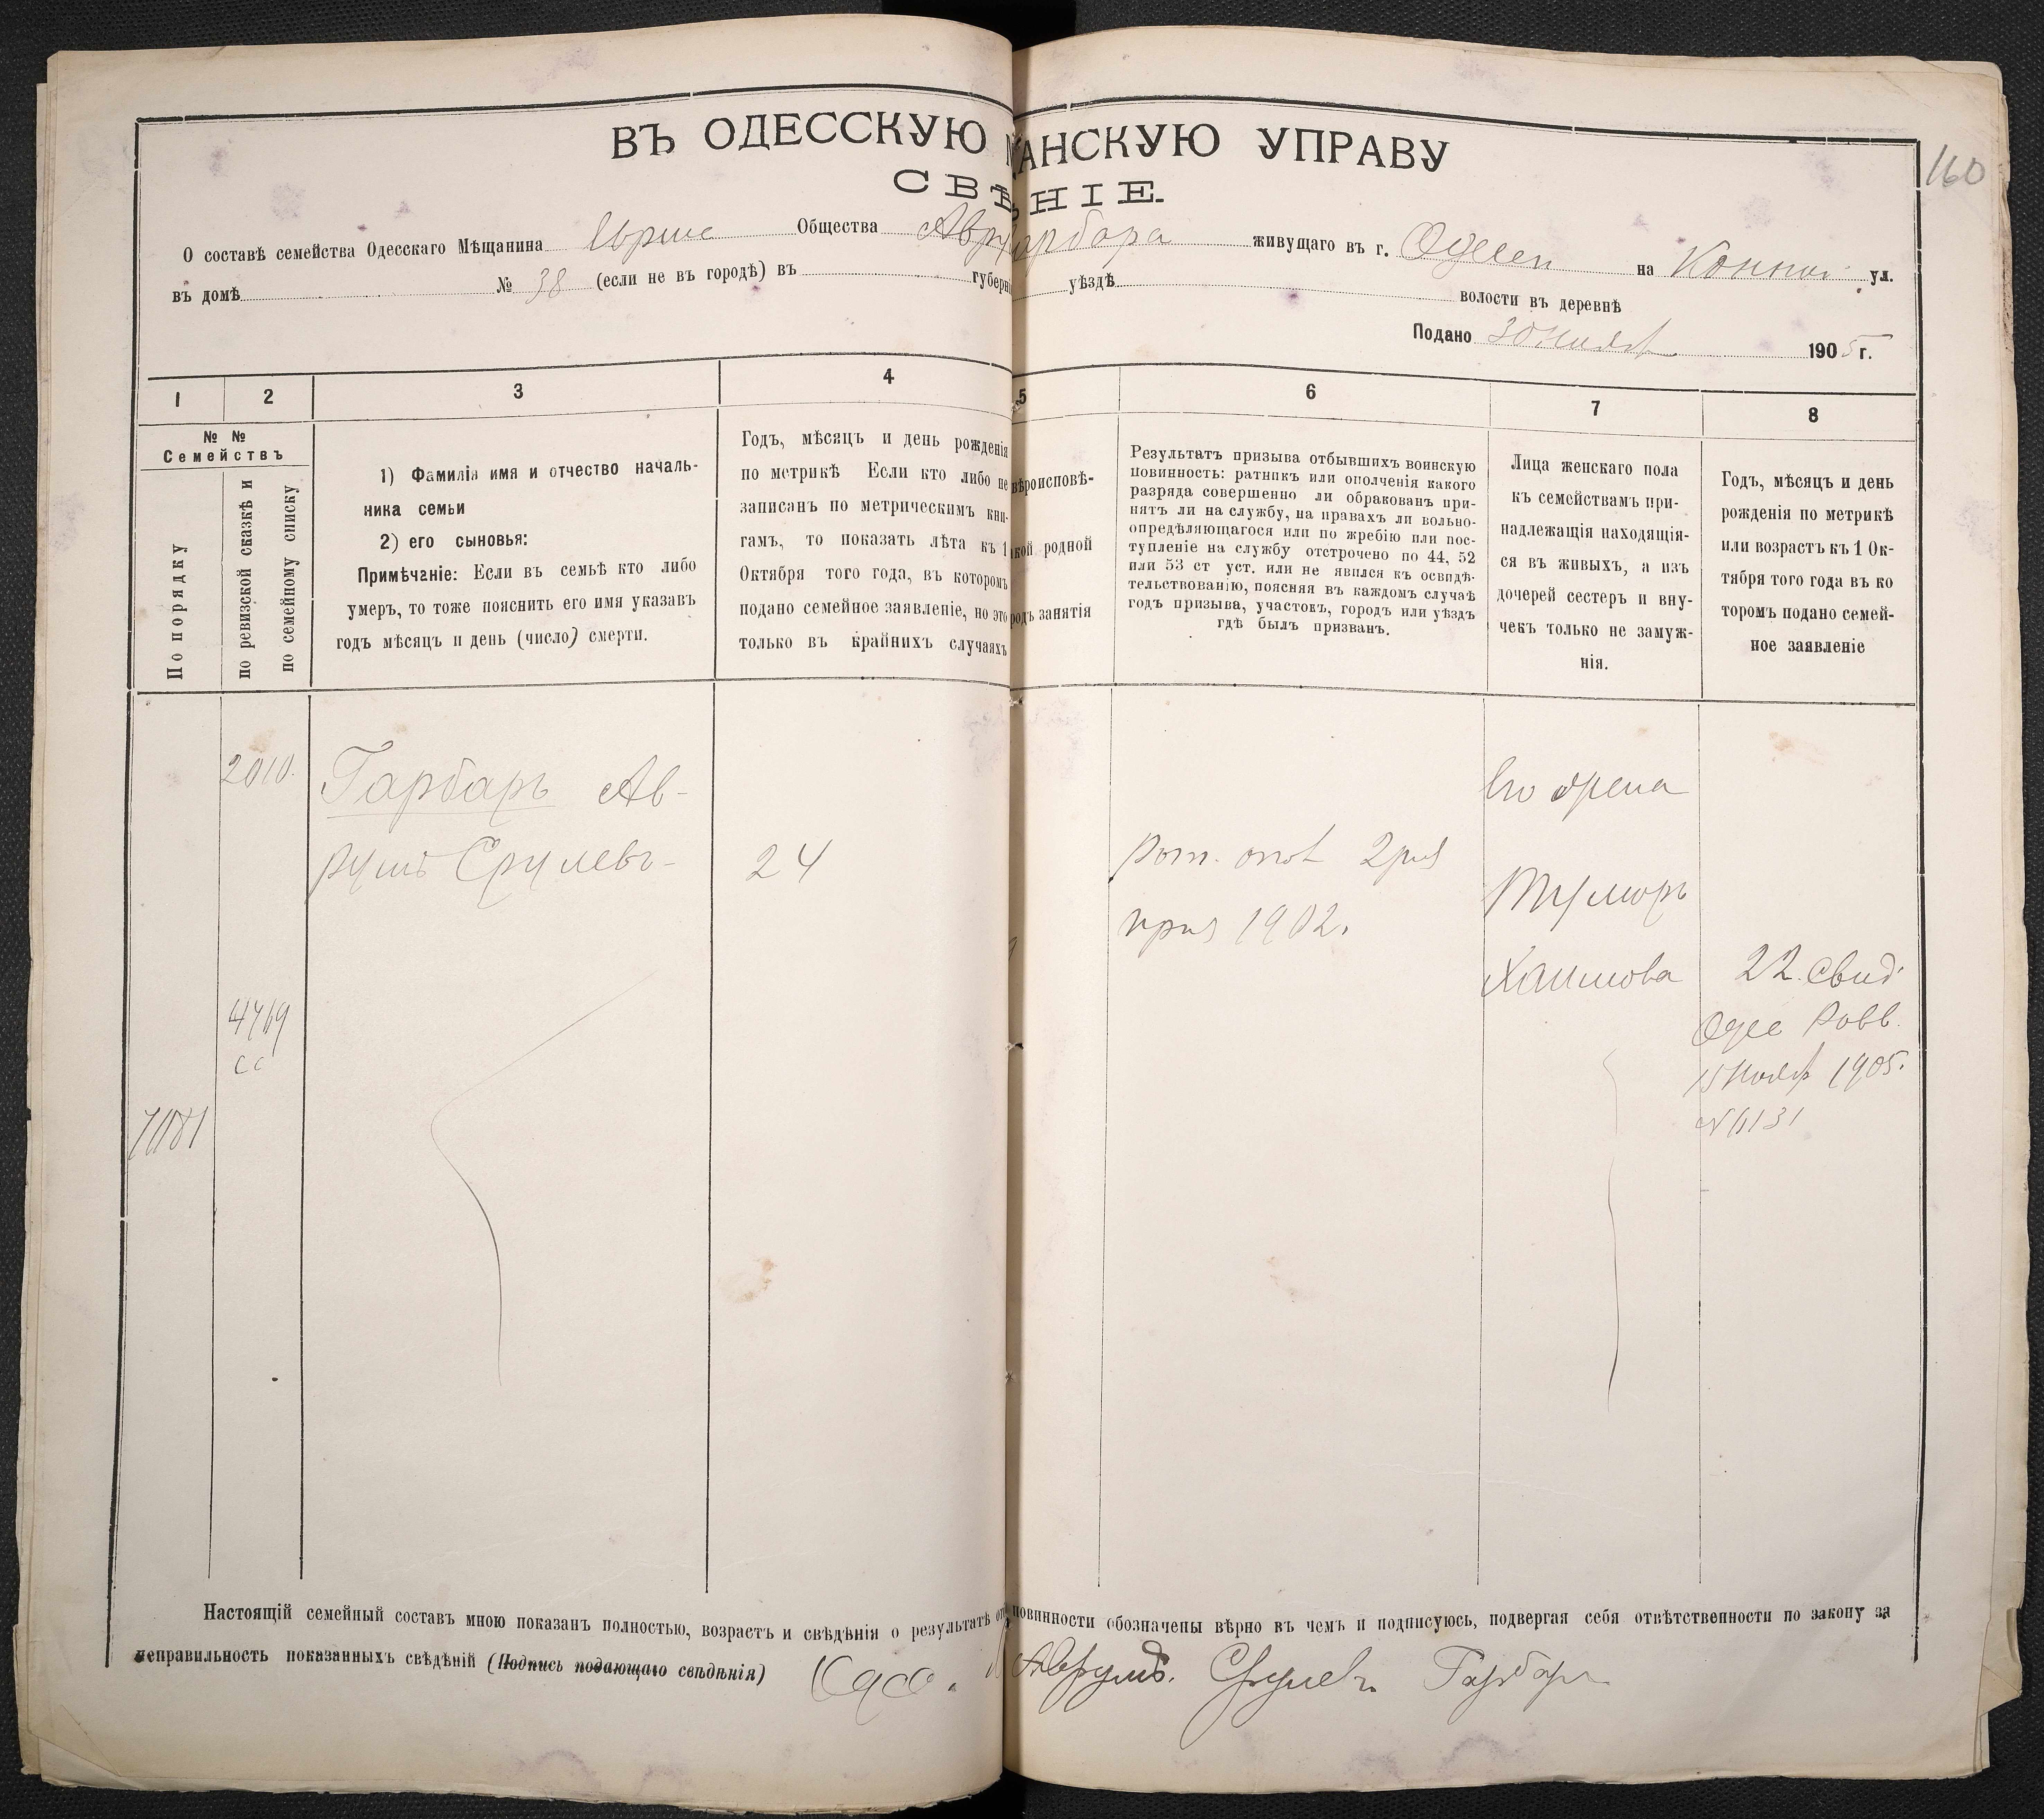 160
ВЪ ОДЕССКУЮ АНСКУЮ УПРАВУ
СВѢ НІЕ.
О составѣ семейства Одесскаго Мѣщанина Общества Авру арбара живущаго въ г. на Конной ул.
въ домѣ № 38 (если не въ городѣ) въ губерні уѣздѣ волости въ деревнѣ
Подано 30 Нояб 1905 г.
1 2 3 4 5 6 7 8
№ №
Семействъ
По порядку
по ревизской сказкѣ и
по семейному списку
1) Фамилія имя и отчество началь-
ника семьи
2) его сыновья:
Примѣчаніе: Если въ семьѣ кто либо
умеръ, то тоже пояснить его имя указавъ
годъ мѣсяцъ и день (число) смерти.
Годъ, мѣсяцъ и день рожденія
по метрикѣ Если кто либо не
записанъ по метрическимъ кни-
гамъ, то показать лѣта къ 1
Октября того года, въ которомъ
подано семейное заявленіе, но это
только въ крайнихъ случаяхъ
вѣроисповѣ-
кой родной
родъ занятія
Результатъ призыва отбывшихъ воинскую
повинность: ратникъ или ополченія какого
разряда совершенно ли обракованъ при-
нятъ ли на службу, на правахъ ли вольно-
опредѣляющагося или по жребію или пос-
тупленіе на службу отстрочено по 44, 52
или 53 ст уст. или не явился къ освидѣ-
тельствованію, поясняя въ каждомъ случаѣ
годъ призыва, участокъ, городъ или уѣздъ
гдѣ былъ призванъ.
Лица женскаго пола
къ семействамъ при-
надлежащія находящія-
ся въ живыхъ, а изъ
дочерей сестеръ и вну-
чекъ только не замуж-
нія.
Годъ, мѣсяцъ и день
рожденія по метрикѣ
или возрастъ къ 1 Ок-
тября того года въ ко
торомъ подано семей-
ное заявленіе
2010.
Гарбаръ Ав-
румъ Срулевъ-
24
рат. опол 2 раз
приз 1902.
Его жена
Хаимова
22. свид.
Одес Равв.
15 Нояб 1905.
№ 6131
4769
сс
7081
Настоящій семейный составъ мною показанъ полностью, возрастъ и свѣдѣнія о результатѣ от повинности обозначены вѣрно въ чемъ и подписуюсь, подвергая себя отвѣтственности по закону за
неправильность показанныхъ свѣдѣній (Подпись подающаго свѣдѣнія) Аврумъ. Срулевъ Гарбаръ